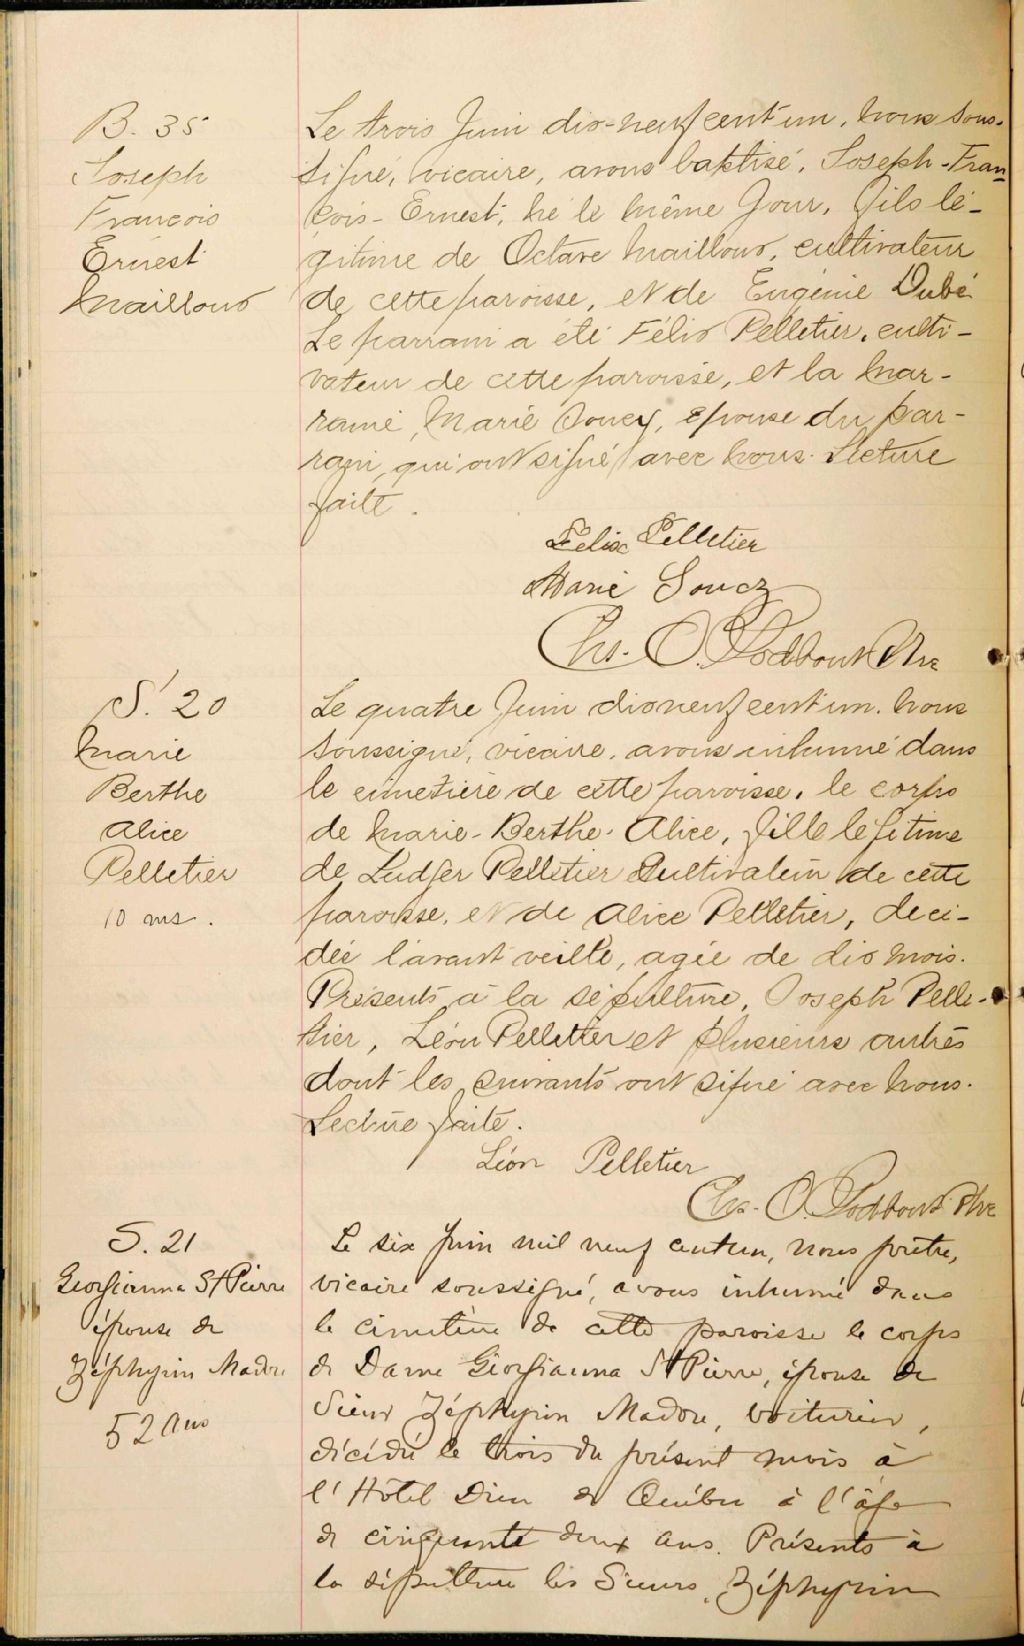 B. 35
Joseph
François
Ernest
Mailloux
Le trois Juin dix-neuf cent un, nous sous-
signé, vicaire, avons baptisé, Joseph-Fran
çois-Ernest, né le même jour, fils lé-
gitime de Octave Mailloux, cultivateur
de cette paroisse, et de Eugénie Dubé
Le parrain a été Félix Pelletier, culti-
vateur de cette paroisse, et la mar-
raine, Marie Soucy, épouse du par-
rain, qui ont signé avec nous. Lecture
faite.
Felix Pelletier
Marie Soucy
Chs. O. Godbout Ptre
S. 20
Marie
Berthe
Alice
Pelletier
10 ms.
Le quatre Juin dix neuf cent un, nous
soussigné, vicaire, avons inhumé dans
le cimetière de cette paroisse, le corps
de Marie-Berthe-Alice, fille légitime
de Ludger Pelletier Cultivateur de cette
paroisse, et de Alice Pelletier, décé-
dée l'avant veille, agée de dix mois.
Présents à la sépulture, Joseph Pelle-
tier, Léon Pelletier et plusieurs autres
dont les suivants ont signé avec nous.
Lecture faite.
Léon Pelletier
Chs. O. Godbout Ptre
S. 21
Georgianna St Pierre
épouse de
Zéphyrin Madore
52 ans
Le six Juin mil neuf cent un, nous prêtre,
vicaire soussigné, avons inhumé dans
le cimetière de cette paroisse le corps
de Dame Georgianna St Pierre, épouse de
Sieur Zéphyrin Madore, voiturier,
décédée le trois du présent mois à
l'Hôtel Dieu de Québec à l'âge
de cinquante deux ans. Présents à
la sépulture les Sieurs, Zéphyrin